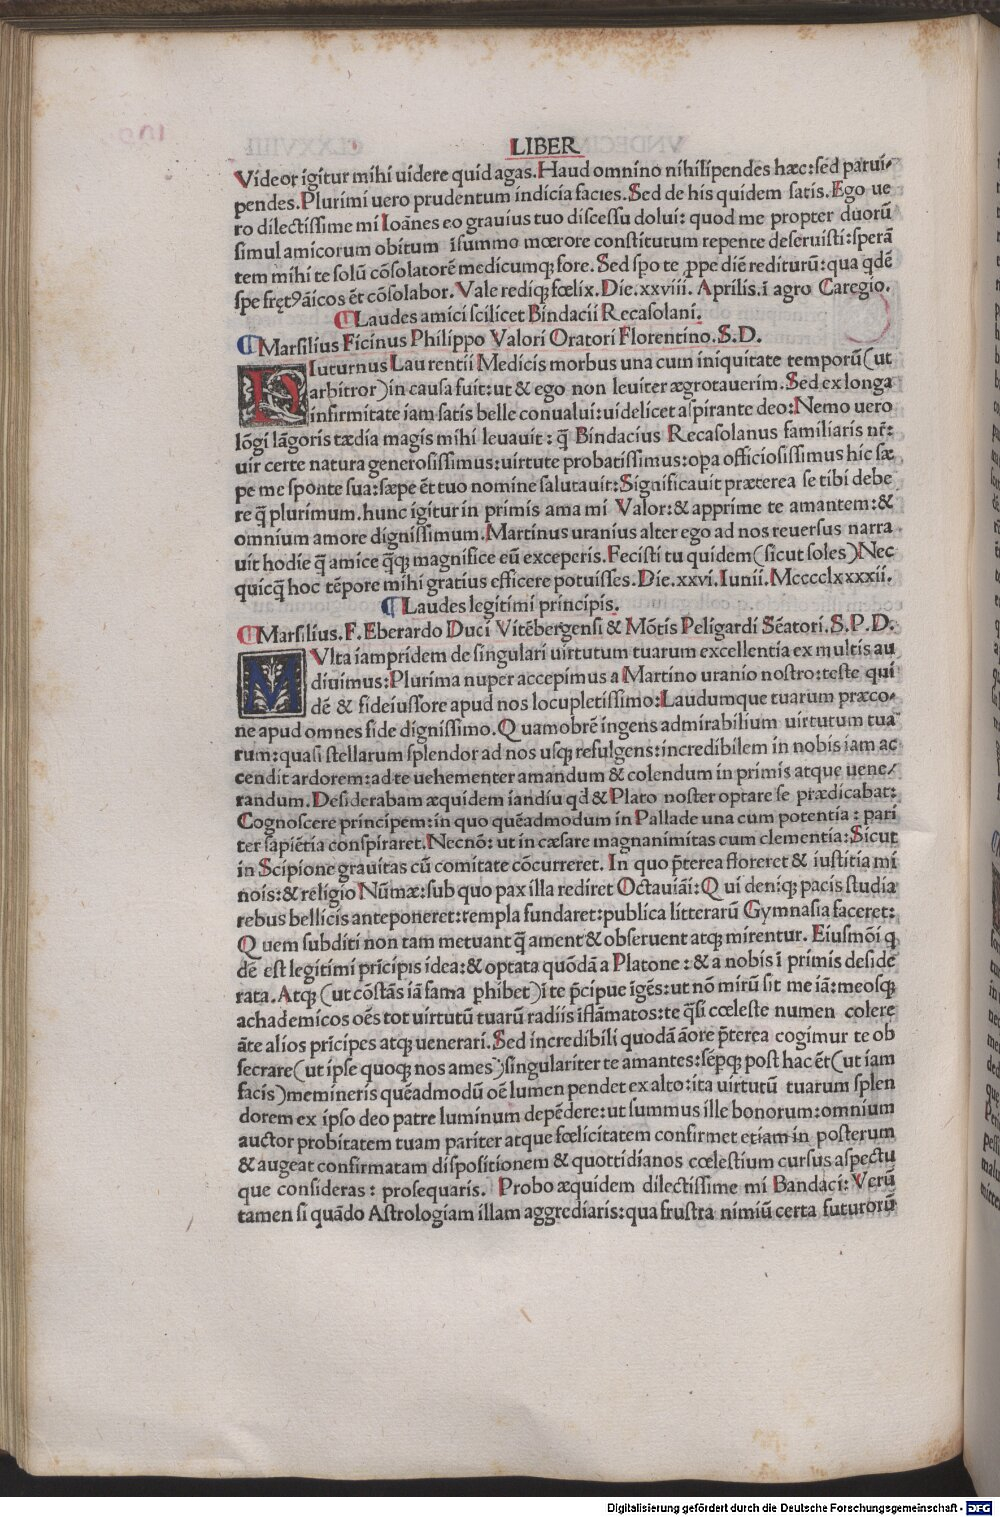 LIBER
Videor igitur mihi uidere quid agas. Haud omnino nihilipendes hæc: sed parui-
pendes. Plurimi uero prudentum indicia facies. Sed de his quidem satis. Ego ue
ro dilectissime mi Ioānes eo grauius tuo discessu dolui: quod me propter duorū
simul amicorum obitum ī summo mœrore constitutum repente deseruisti: sperā
tem mihi te solū cōsolatorē medicumq; fore. Sed spo te ꝓpe diē rediturū: qua qdē
spe fręt9 āicos ēt cōsolabor. Vale rediq; fœlix. Die. xxviii. Aprilis. ī agro Caregio.
Laudes amici scilicet Bindacii Recasolani.
Marsilius Ficinus Philippo Valori Oratori Florentino. S. D.
DIuturnus Laurentii Medicis morbus una cum iniquitate temporū (ut
arbitror) in causa fuit: ut & ego non leuiter ægrotauerim. Sed ex longa
infirmitate iam satis belle conualui: uidelicet aspirante deo: Nemo uero
lōgi lāgoris tædia magis mihi leuauit: q̄ Bindacius Recasolanus familiaris nr̄:
uir certe natura generosissimus: uirtute probatissimus: opa officiosissimus hic sæ
pe me sponte sua: sæpe ēt tuo nomine salutauit: Significauit præterea se tibi debe
re q̄ plurimum. hunc igitur in primis ama mi Valor: & apprime te amantem: &
omnium amore dignissimum. Martinus uranius alter ego ad nos reuersus narra
uit hodie q̄ amice q̄q; magnifice eū exceperis. Fecisti tu quidem (sicut soles) Nec
quicq̄ hoc tēpore mihi gratius efficere potuisses. Die. xxvi. Iunii. Mcccclxxxxii.
Laudes legitimi principis.
Marsilius. F. Eberardo Duci Vitēbergensi & Mōtis Peligardi Sēatori. S. P. D.
MVlta iampridem de singulari uirtutum tuarum excellentia ex multis au
diuimus: Plurima nuper accepimus a Martino uranio nostro: teste qui
dē & fideiussore apud nos locupletissimo: Laudumque tuarum præco-
ne apud omnes fide dignissimo. Quamobrē ingens admirabilium uirtutum tua
rum: quasi stellarum splendor ad nos usq; refulgens: incredibilem in nobis iam ac
cendit ardorem: ad te uehementer amandum & colendum in primis atque uene/
randum. Desiderabam æquidem iandiu qd & Plato noster optare se prædicabat:
Cognoscere principem: in quo quēadmodum in Pallade una cum potentia: pari
ter sapiētia conspiraret. Necnō: ut in cæsare magnanimitas cum clementia: Sicut
in Scipione grauitas cū comitate cōcurreret. In quo p̄terea floreret & iustitia mi
nois: & religio Nūmæ: sub quo pax illa rediret Octauiāi: Qui deniq; pacis studia
rebus bellicis anteponeret: templa fundaret: publica litterarū Gymnasia faceret:
Quem subditi non tam metuant q̄ ament & obseruent atq; mirentur. Eiusmōi q
dē est legitimi prīcipis idea: & optata quōdā a Platone: & a nobis ī primis deside
rata. Atq; (ut cōstās iā fama ꝓhibet) ī te p̄cipue īgēs: ut nō mirū sit me iā: meosq;
achademicos oēs tot uirtutū tuarū radiis īflāmatos: te q̄si cœleste numen colere
āte alios prīcipes atq; uenerari. Sed incredibili quodā āore p̄terea cogimur te ob
secrare (ut ipse quoq; nos ames) singulariter te amantes: sēpq; post hac ēt (ut iam
facis) memineris quēadmodū oē lumen pendet ex alto: ita uirtutū tuarum splen
dorem ex ipso deo patre luminum depēdere: ut summus ille bonorum: omnium
auctor probitatem tuam pariter atque fœlicitatem confirmet etiam in posterum
& augeat confirmatam dispositionem & quottidianos cœlestium cursus aspectu
que consideras: prosequaris. Probo æquidem dilectissime mi Bandaci: Verū
tamen si quādo Astrologiam illam aggrediaris: qua frustra nimiū certa futurorū
Digitalisierung gefördert durch die Deutsche Forschungsgemeinschaft - DFG